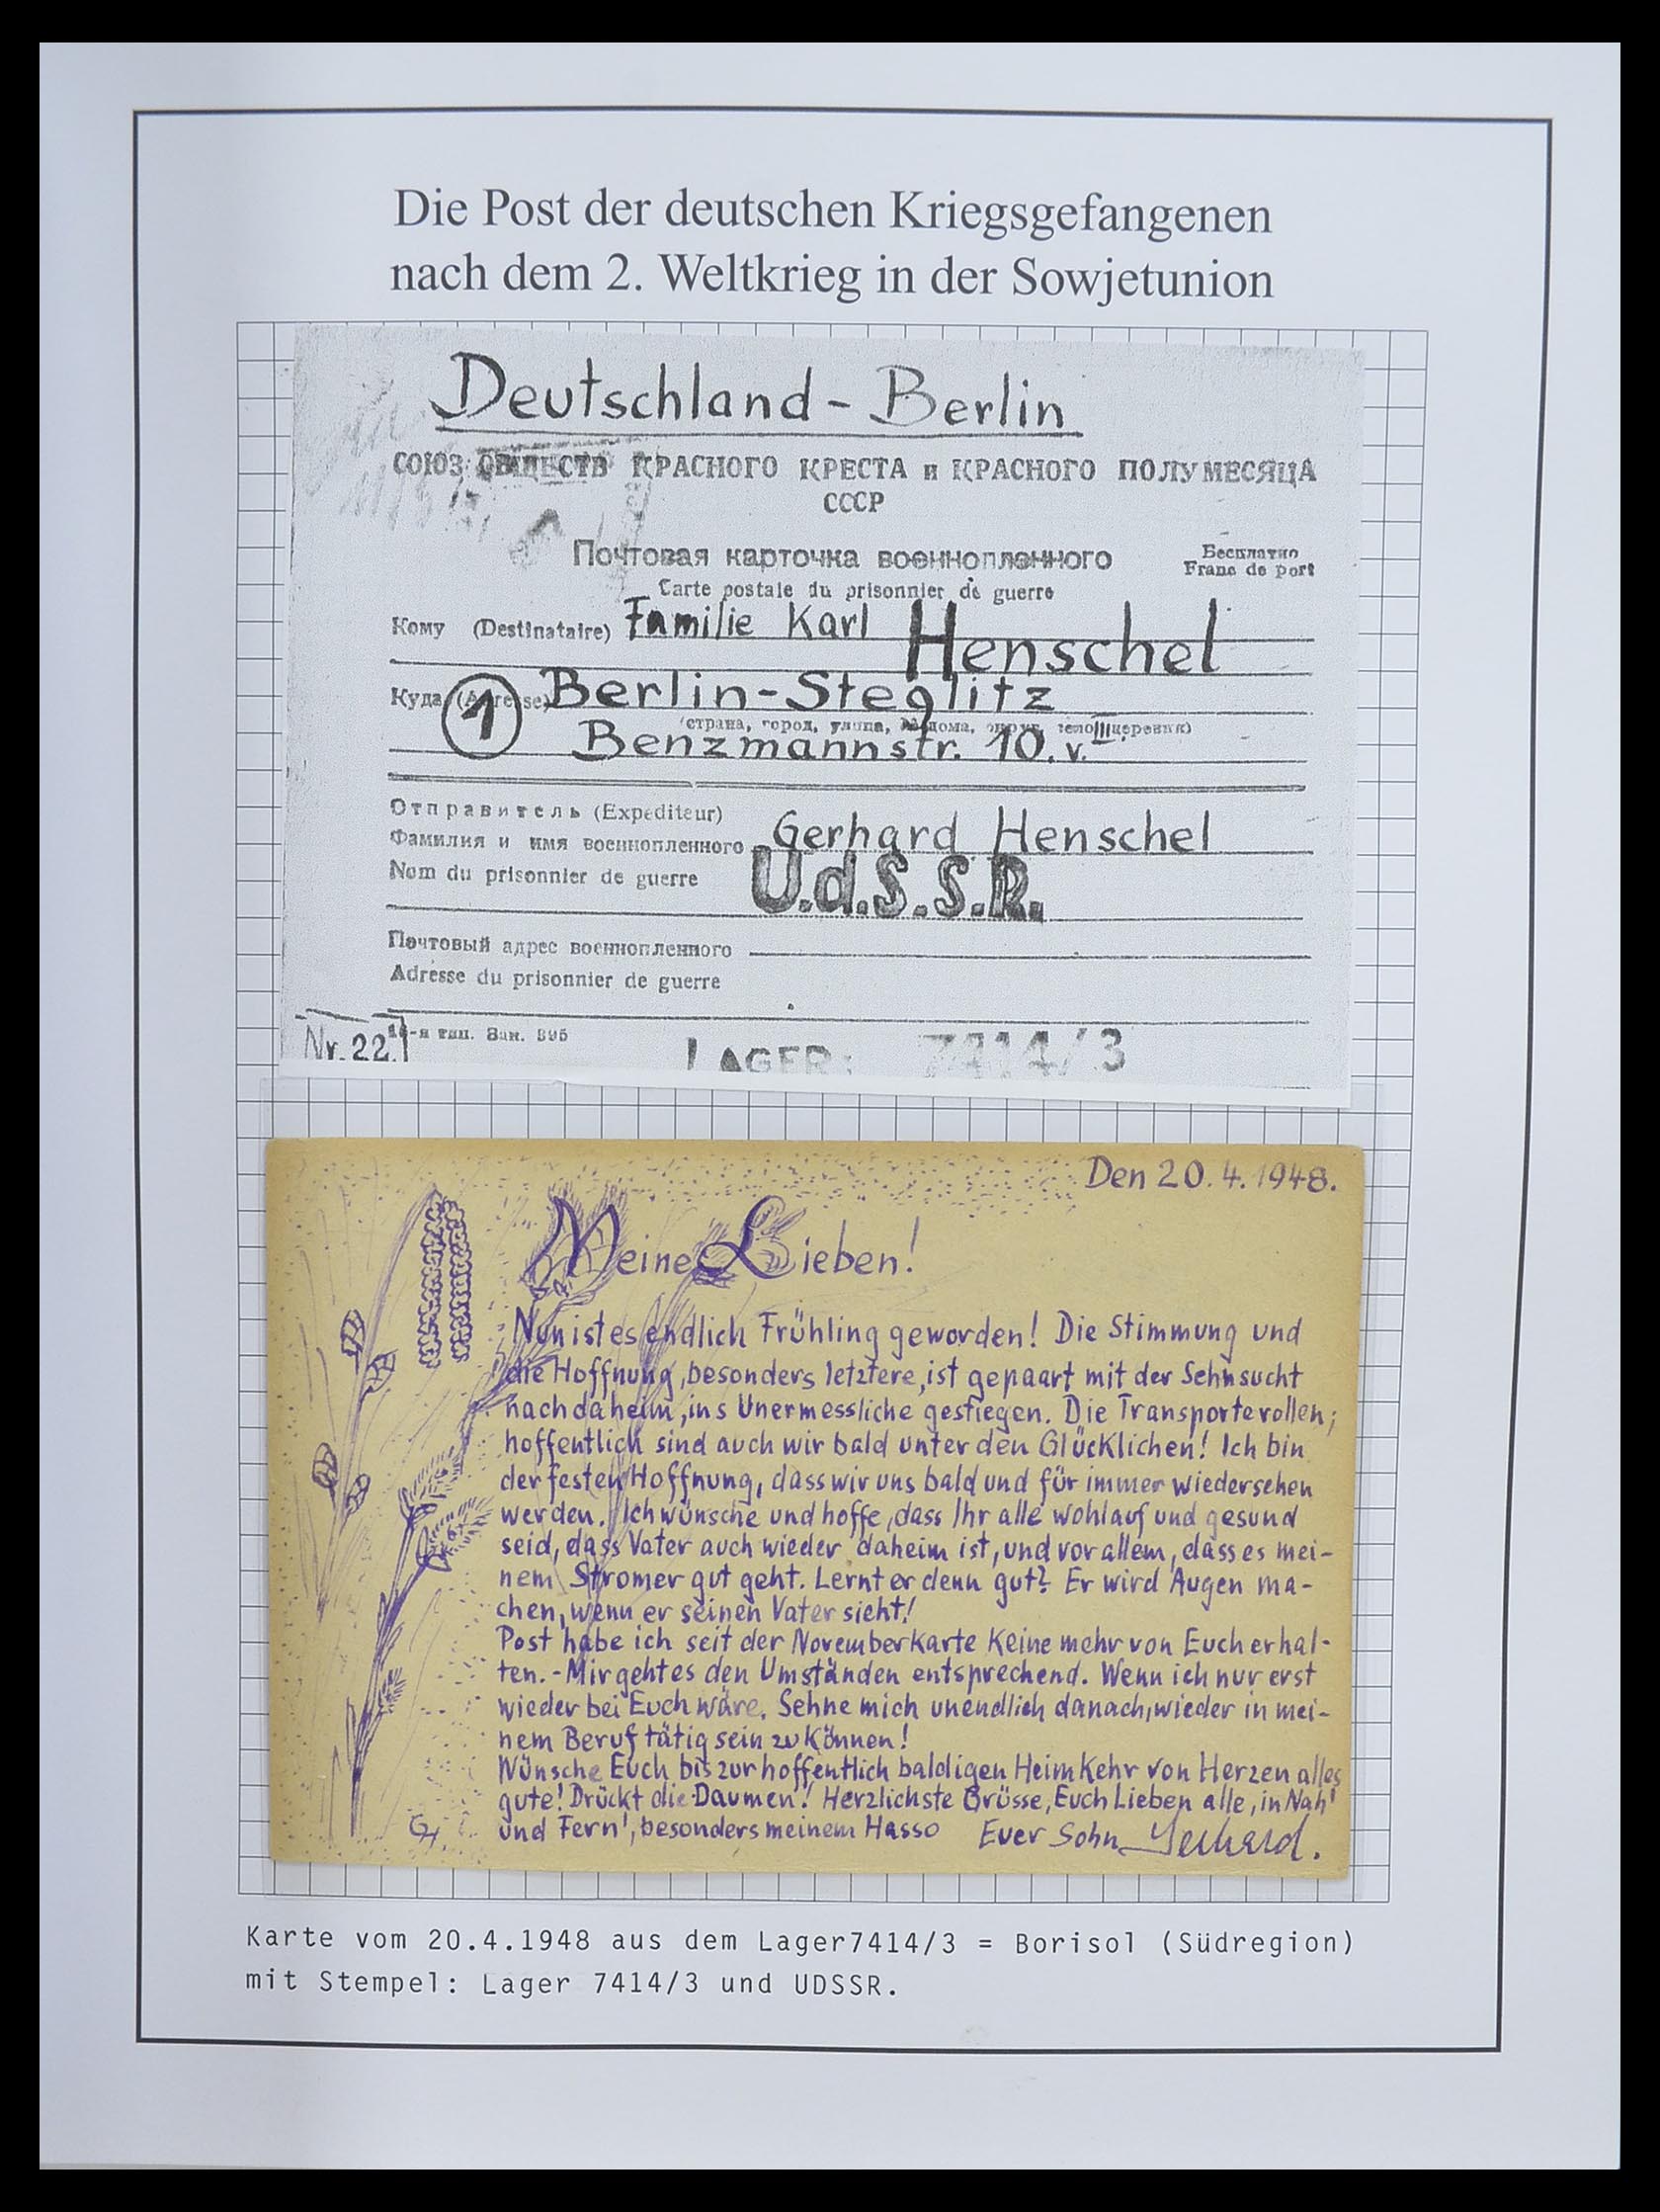 Die Post der deutschen Kriegsgefangenen
nach dem 2. Weltkrieg in der Sowjetunion
Deutschland - Berlin
СОЮЗ ОБЩЕСТВ КРАСНОГО КРЕСТА и КРАСНОГО ПОЛУМЕСЯЦА
СССР
Почтовая карточка военнопленного
Бесплатно
Franc de port
Carte postale du prisonnier de guerre
Кому (Destinataire) Familie Karl Henschel
Куда (Adresse) Berlin-Steglitz
1
(страна, город, улица, № дома, округ, село, деревня)
Benzmannstr. 10. v. III
Отправитель (Expéditeur)
Фамилия и имя военнопленного Gerhard Henschel
Nom du prisonnier de guerre U.d.S.S.R.
Почтовый адрес военнопленного
Adresse du prisonnier de guerre
Nr. 22.
-я тип. Зак.
LAGER: 7414/3
Den 20.4.1948.
Meine Lieben!
Nun ist es endlich Frühling geworden! Die Stimmung und
die Hoffnung, besonders letztere, ist gepaart mit der Sehnsucht
nach daheim, ins Unermessliche gestiegen. Die Transporte rollen;
hoffentlich sind auch wir bald unter den Glücklichen! Ich bin
der festen Hoffnung, dass wir uns bald und für immer wiedersehen
werden. Ich wünsche und hoffe, dass Ihr alle wohlauf und gesund
seid, dass Vater auch wieder daheim ist, und vor allem, dass es mei-
nem Stromer gut geht. Lernt er denn gut? Er wird Augen ma-
chen, wenn er seinen Vater sieht!
Post habe ich seit der Novemberkarte keine mehr von Euch erhal-
ten. - Mir geht es den Umständen entsprechend. Wenn ich nur erst
wieder bei Euch wäre. Sehne mich unendlich danach, wieder in mei-
nem Beruf tätig sein zu können!
Wünsche Euch bis zur hoffentlich baldigen Heimkehr von Herzen alles
gute! Drückt die Daumen! Herzlichste Grüsse, Euch Lieben alle, in Nah'
und Fern', besonders meinem Hasso Euer Sohn Gerhard.
GH
Karte vom 20.4.1948 aus dem Lager7414/3 = Borisol (Südregion)
mit Stempel: Lager 7414/3 und UDSSR.